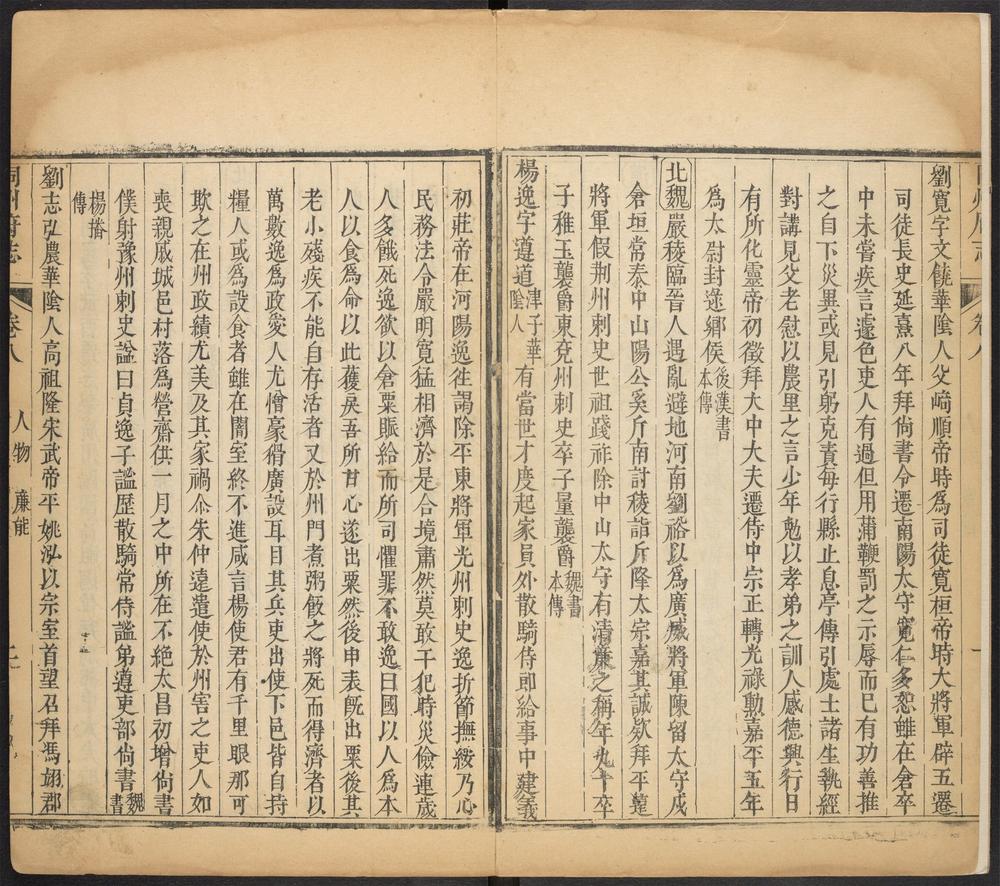 劉寬字文饒華陰人父﨑順帝時為司徒寬桓帝時大將軍辟五遷
司徒長史延熹八年拜尚書令遷南陽太守寬仁多恕雖在倉卒
中未嘗疾言遽色吏人有過但用蒲鞭罰之示辱而已有功善推
之自下災異或見引躬克責每行縣止息亭傳引處士諸生執經
對講見父老慰以農里之言少年勉以孝弟之訓人感德興行日
有所化靈帝初徵拜太中大夫遷侍中宗正轉光祿勳嘉平五年
為太尉封逯鄉侯後漢書本傳
北魏嚴稜臨晉人遇亂避地河南劉裕以為廣威將軍陳留太守戍
倉垣常泰中山陽公奚斤南討稜詣斤降太宗嘉其誠欵拜平遠
將軍假荆州刺史世祖踐祚除中山太守有清廉之稱年九十卒
子稚玉襲爵東兗州刺史卒子量襲爵魏書本傳
楊逸字遵道津子華陰人有當世才度起家員外散騎侍郎給事中建義
初莊帝在河陽逸徃謁除平東將軍光州刺史逸折節撫綏乃心
民務法令嚴明寬猛相濟於是合境肅然莫敢干犯時災儉連歲
人多餓死逸欲以倉粟賑給而所司懼罪不敢逸曰國以人為本
人以食為命以此獲戾吾所甘心遂出粟然後申表旣出粟後其
老小殘疾不能自存活者又於州門煮粥飯之將死而得濟者以
萬數逸為政愛人尤憎豪猾廣設耳目其兵吏出使下邑皆自持
糧人或為設食者雖在闇室終不進咸言楊使君有千里眼那可
欺之在州政績尤美及其家禍尒朱仲遠遣使於州害之吏人如
喪親戚城邑村落為營齋供一月之中所在不絶太昌初增尚書
僕射豫州刺史謚曰貞逸子謐歷散騎常侍謐弟遵吏部尚書魏書
楊播傳
劉志弘農華陰人高祖隆宋武帝平姚泓以宗室首望召拜馮翊郡
同州府志
卷八
人物
廉能
二